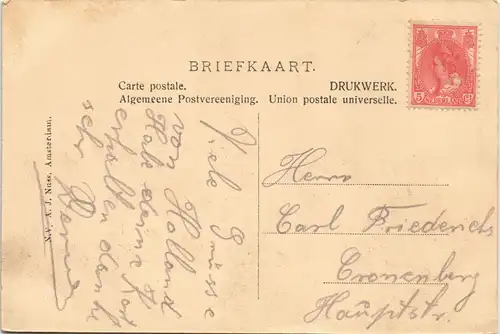 BRIEFKAART.
Carte postale. DRUKWERK.
Algemeene Postvereeniging. Union postale universelle.
N.V. A. J. Nuss. Amsterdam.
Viele Grüsse
von Holland
Habe deine Kart
erhalten danke
sehr
Herrn
Carl Friederichs
Cronenberg
Hauptstr.
5
NEDERLAND